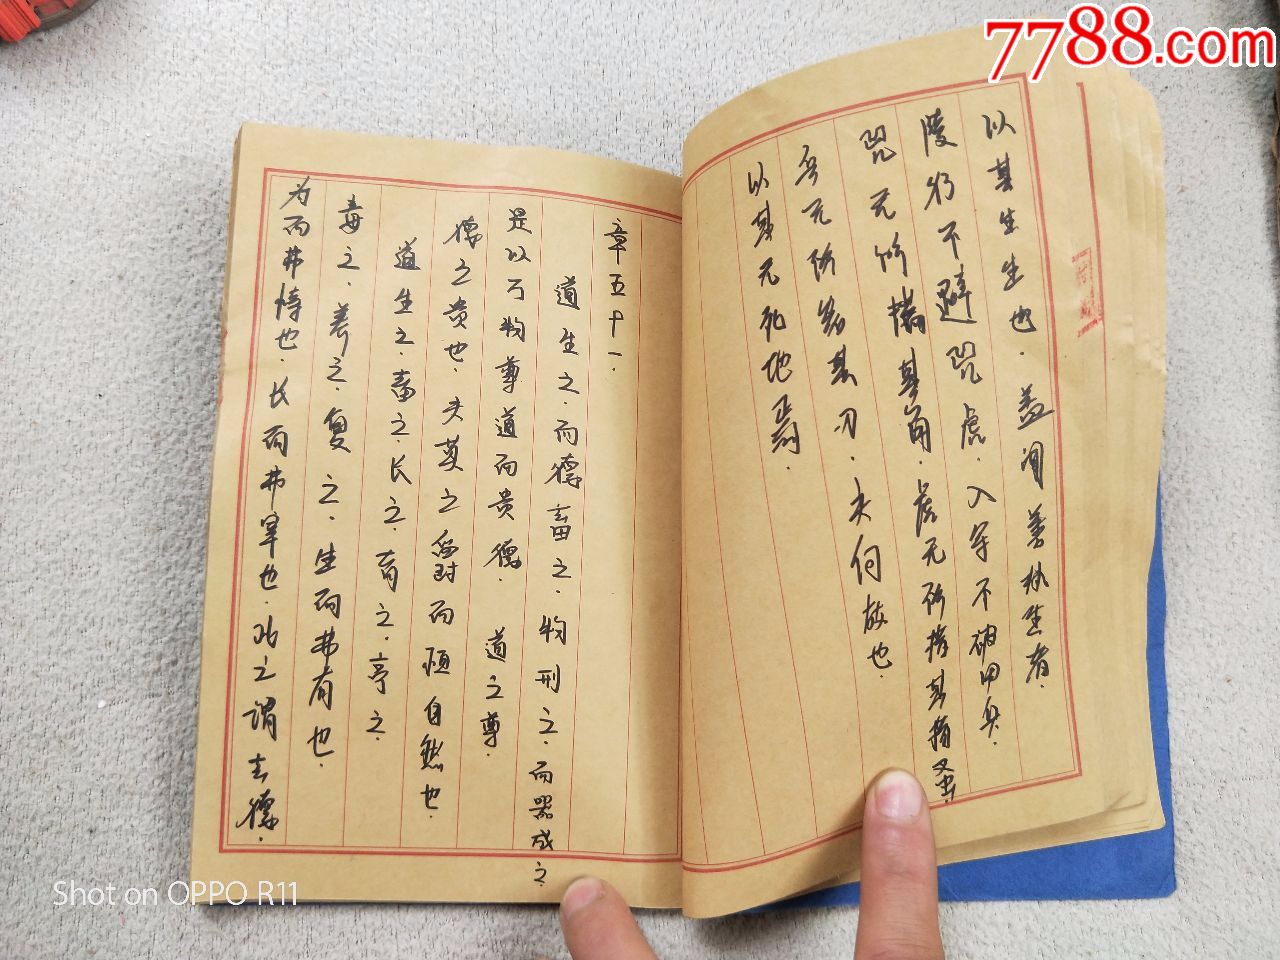 7788.com
以其生生也.盖闻善执生者.
陵行不避兕虎.入军不被甲兵.
兕无所揣其角.虎无所措其
兵无所容其刃.夫何故也.
以其无死地焉.
章五十一.
道生之.而德畜之.物刑之.而器成之.
是以万物尊道而贵德.道之尊.
德之贵也.夫莫之爵而恒自然也.
道生之.畜之.长之.育之.亭之.
毒之.养之.复之.生而弗有也.
为而弗恃也.长而弗宰也.此之谓玄德.
Shot on OPPO R11